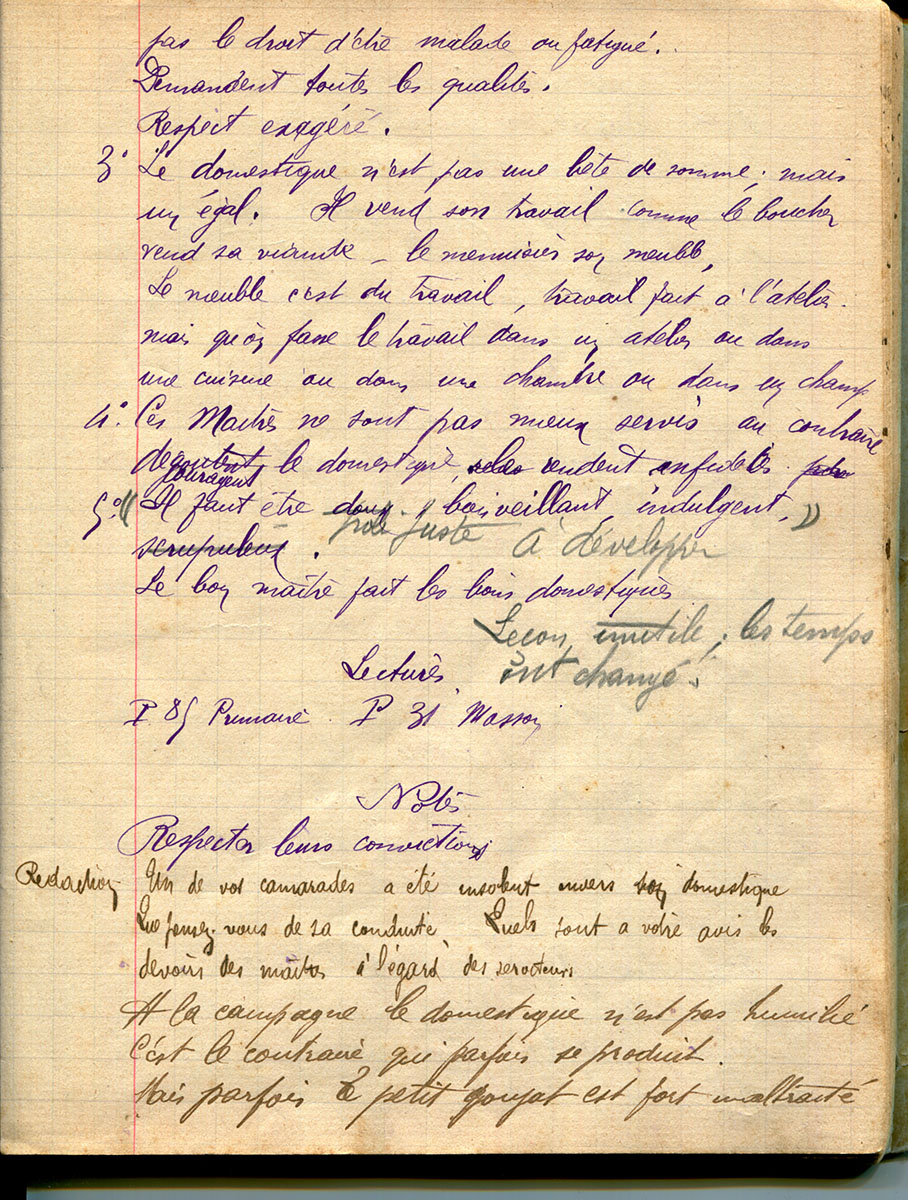 pas le droit d'être malade ou fatigué.
Demandent toutes les qualités.
Respect exagéré.
3° Le domestique n'est pas une bête de somme ; mais
un égal. Il vend son travail comme le boucher
vend sa viande – le menuisier son meuble,
Le meuble c'est du travail, travail fait à l'atelier.
mais qu'on fasse le travail dans un atelier ou dans
une cuisine ou dans une chambre ou dans un champ
4°. Ces Maîtres ne sont pas mieux servis au contraire
degoutent le domestique, rendent infidèles
couragent
5° (( Il faut être doux, bienveillant, indulgent, ))
scrupuleux. juste à développer
Le bon maître fait les bons domestiques
Leçon inutile ; les temps
ont changé.
Lectures
P 85 Primaire. P 31 Masson
Notes
Respecter leurs convictions
Redaction Un de vos camarades a été insolent envers son domestique
Que pensez-vous de sa conduite Quels sont a votre avis les
devoirs des maitres à l'égard des serviteurs
A la campagne le domestique n'est pas humilié
C'est le contraire qui parfois se produit.
Mais parfois le petit goujat est fort maltraité